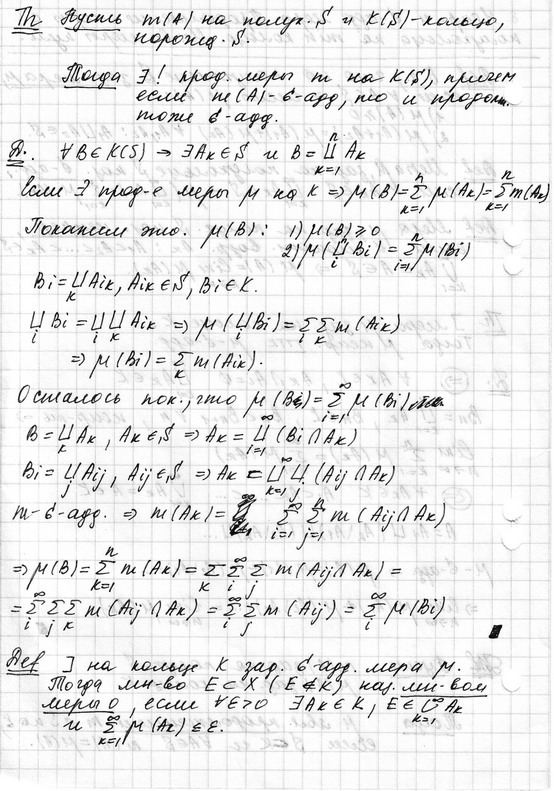 Th Пусть m(A) на полук. S и K(S)-кольцо,
порожд. S.
Тогда ∃! прод. меры m на K(S), причем
если m(A)- σ-адд, то и продолж.
тоже σ-адд.
Д. ∀B∈K(S) → ∃Aₖ∈S и B = ⨆ₖ₌₁ⁿ Aₖ
Если ∃ прод-е меры μ на K ⇒ μ(B)=∑ₖ₌₁ⁿ μ(Aₖ)=∑ₖ₌₁ⁿ m(Aₖ)
Покажем это. μ(B): 1) μ(B)⩾0
2) μ(⨆ᵢⁿ Bi) = ∑ᵢ₌₁ⁿ μ(Bi)
Bi = ⨆ₖ Aik, Aik∈S, Bi∈K.
⨆ᵢ Bi = ⨆ᵢ ⨆ₖ Aik ⇒ μ(⨆ᵢ Bi) = ∑ᵢ ∑ₖ m(Aik)
⇒ μ(Bi) = ∑ₖ m(Aik).
Осталось пок., что μ(B) = ∑ᵢ₌₁^∞ μ(Bi)
B = ⨆ₖ Aₖ, Aₖ∈S ⇒ Aₖ = ⨆ᵢ₌₁^∞ (Bi ∩ Aₖ)
Bi = ⨆ⱼ Aij, Aij∈S ⇒ Aₖ = ⨆ₖ₌₁^∞ ⨆ⱼ (Aij ∩ Aₖ)
m-σ-адд. ⇒ m(Aₖ) = ∑ᵢ₌₁^∞ ∑ⱼ₌₁ⁿ m(Aij ∩ Aₖ)
⇒ μ(B) = ∑ₖ₌₁ⁿ m(Aₖ) = ∑ₖ ∑ᵢ^∞ ∑ⱼ m(Aij ∩ Aₖ) =
= ∑ᵢ^∞ ∑ⱼ ∑ₖ m(Aij ∩ Aₖ) = ∑ᵢ^∞ ∑ⱼ m(Aij) = ∑ᵢ^∞ μ(Bi)
Def ] на кольце K зад. σ-адд. мера μ.
Тогда мн-во E⊂X (E∉K) наз. мн-вом
меры 0, если ∀ε>0 ∃Aₖ∈K, E∈⋃ₖ₌₁^∞ Aₖ
и ∑ₖ₌₁^∞ μ(Aₖ) ≤ ε.